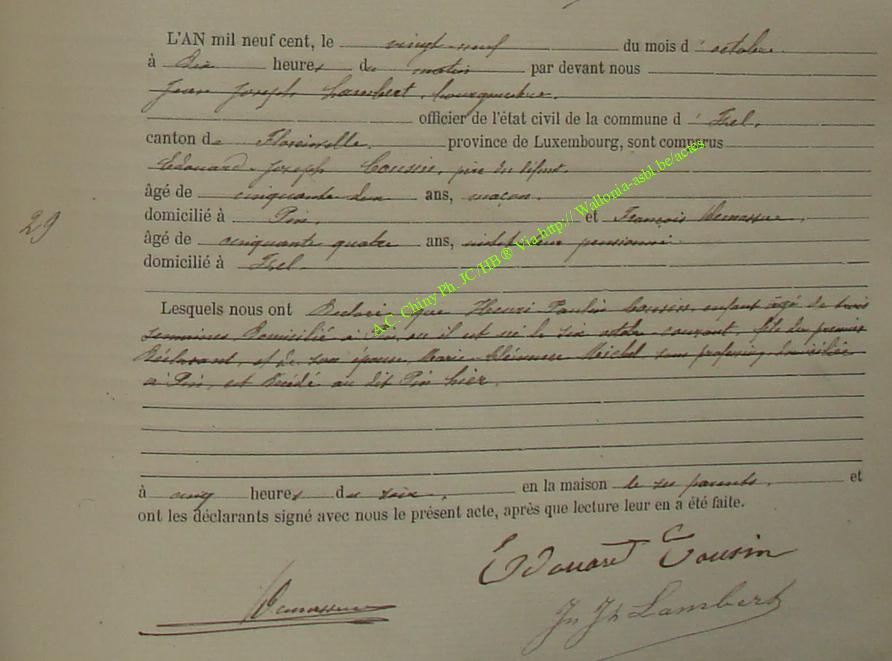 L'AN mil neuf cent, le vingt-neuf du mois d'octobre
à Dix heures du matin par devant nous
Jean Joseph Lambert, bourgmestre.
officier de l'état civil de la commune d'Izel,
canton de Florenville. province de Luxembourg, sont comparus
Edouard Joseph Cousin, père du défunt.
âgé de cinquante deux ans, maçon.
domicilié à Pin. et François Demasure.
âgé de cinquante quatre ans, pensionné.
domicilié à Izel.
29
Lesquels nous ont Déclaré que Henri Paulin Cousin, enfant âgé de trois
semaines, Domicilié à Pin, où il est né le six octobre courant, fils du premier
Déclarant, et de son épouse, Marie Michel sans profession, domiciliée
à Pin, est Décédé au dit Pin hier.
à cinq heures du soir, en la maison de ses parents. et
ont les déclarants signé avec nous le présent acte, après que lecture leur en a été faite.
Edouard Cousin
Jn Jh Lambert
A.C. Chiny Ph. JC/HB ® Via http:// Wallonia-asbl.be/actes